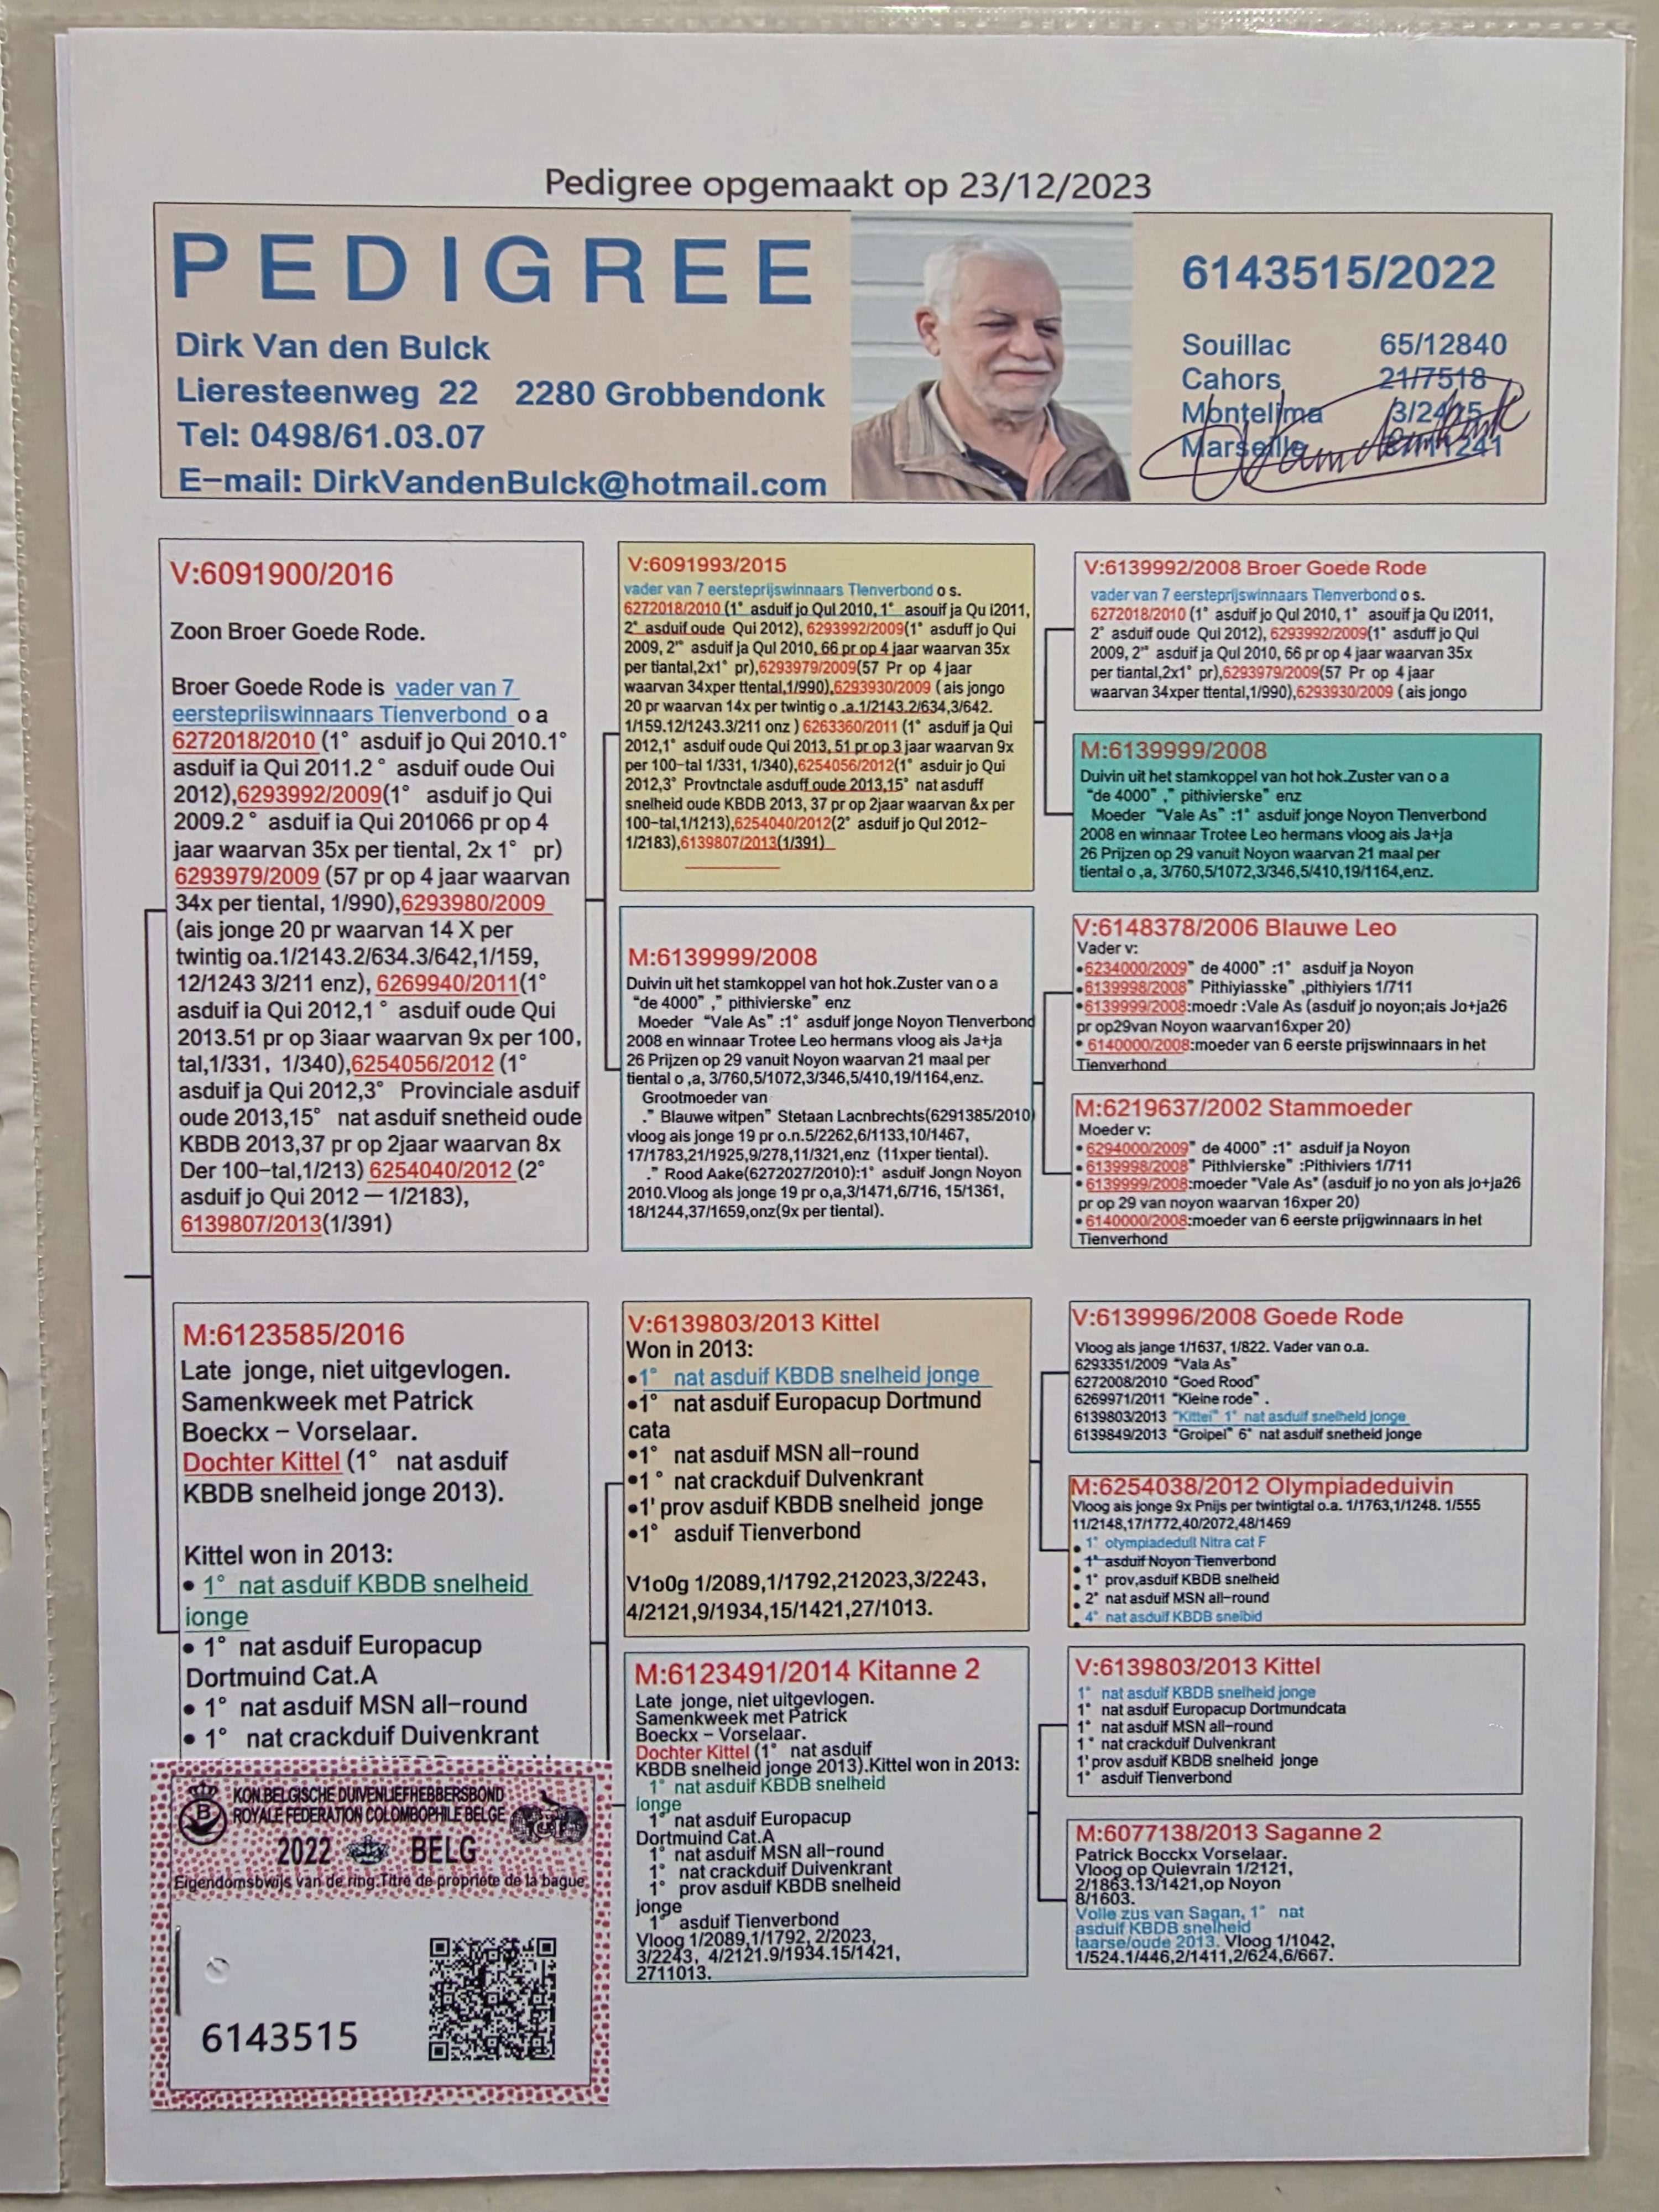 Pedigree opgemaakt op 23/12/2023
PEDIGREE
Dirk Van den Bulck
Lieresteenweg 22 2280 Grobbendonk
Tel: 0498/61.03.07
E-mail: DirkVandenBulck@hotmail.com
6143515/2022
Souillac 65/12840
Cahors 21/7518
Montelima
Marseille
V:6091900/2016
Zoon Broer Goede Rode.
Broer Goede Rode is vader van 7
eersteprliswinnaars Tienverbond o a
6272018/2010 (1° asduif jo Qui 2010.1°
asduif ia Qui 2011.2° asduif oude Oui
2012),6293992/2009(1° asduif jo Qui
2009.2° asduif ia Qui 201066 pr op 4
jaar waarvan 35x per tiental, 2x1° pr)
6293979/2009 (57 pr op 4 jaar waarvan
34x per tiental, 1/990),6293980/2009
(ais jonge 20 pr waarvan 14 X per
twintig oa.1/2143.2/634.3/642,1/159,
12/1243 3/211 enz), 6269940/2011(1°
asduif ia Qui 2012,1° asduif oude Qui
2013.51 pr op 3iaar waarvan 9x per 100,
tal,1/331, 1/340),6254056/2012 (1°
asduif ja Qui 2012,3° Provinciale asduif
oude 2013,15° nat asduif snetheid oude
KBDB 2013,37 pr op 2jaar waarvan 8x
Der 100-tal,1/213) 6254040/2012 (2°
asduif jo Qui 2012 — 1/2183),
6139807/2013(1/391)
V:6091993/2015
vader van 7 eersteprijswinnaars Tlenverbond o s.
6272018/2010 (1° asduif jo Qul 2010, 1° asouif ja Qu i2011,
2° asduif oude Qui 2012), 6293992/2009(1° asduff jo Qui
2009, 2'° asduif ja Qul 2010, 66 pr op 4 jaar waarvan 35x
per tiantal,2x1° pr),6293979/2009(57 Pr op 4 jaar
waarvan 34xper ttental,1/990),6293930/2009 (ais jongo
20 pr waarvan 14x per twintig o .a.1/2143.2/634,3/642.
1/159.12/1243.3/211 onz ) 6263360/2011 (1° asduif ja Qui
2012,1° asduif oude Qui 2013, 51 pr op 3 jaar waarvan 9x
per 100-tal 1/331, 1/340),6254056/2012(1° asduir jo Qui
2012,3° Provtnctale asduff oude 2013,15° nat asduff
snelheid oude KBDB 2013, 37 pr op 2jaar waarvan &x per
100-tal,1/1213),6254040/2012(2° asduif jo Qul 2012-
1/2183),6139807/2013(1/391)
M:6139999/2008
Duivin uit het stamkoppel van hot hok.Zuster van o a
“de 4000” ,” pithivierske” enz
Moeder “Vale As” :1° asduif jonge Noyon Tlenverbond
2008 en winnaar Trotee Leo hermans vloog ais Ja+ja
26 Prijzen op 29 vanuit Noyon waarvan 21 maal per
tiental o ,a, 3/760,5/1072,3/346,5/410,19/1164,enz.
Grootmoeder van
.” Blauwe witpen” Stetaan Lacnbrechts(6291385/2010)
vloog als jonge 19 pr o.n.5/2262,6/1133,10/1467,
17/1783,21/1925,9/278,11/321,enz (11xper tiental).
.” Rood Aake(6272027/2010):1° asduif Jongn Noyon
2010.Vloog als jonge 19 pr o,a,3/1471,6/716, 15/1361,
18/1244,37/1659,onz(9x per tiental).
V:6139992/2008 Broer Goede Rode
vader van 7 eersteprijswinnaars Tlenverbond o s.
6272018/2010 (1° asduif jo Qul 2010, 1° asouif ja Qu i2011,
2° asduif oude Qui 2012), 6293992/2009(1° asduff jo Qui
2009, 2'° asduif ja Qul 2010, 66 pr op 4 jaar waarvan 35x
per tiantal,2x1° pr),6293979/2009(57 Pr op 4 jaar
waarvan 34xper ttental,1/990),6293930/2009 (ais jongo
M:6139999/2008
Duivin uit het stamkoppel van hot hok.Zuster van o a
“de 4000” ,” pithivierske” enz
Moeder “Vale As” :1° asduif jonge Noyon Tlenverbond
2008 en winnaar Trotee Leo hermans vloog ais Ja+ja
26 Prijzen op 29 vanuit Noyon waarvan 21 maal per
tiental o ,a, 3/760,5/1072,3/346,5/410,19/1164,enz.
V:6148378/2006 Blauwe Leo
Vader v:
•6234000/2009” de 4000” :1° asduif ja Noyon
•6139998/2008” Pithiyiasske” ,pithiyiers 1/711
•6139999/2008:moedr :Vale As (asduif jo noyon;ais Jo+ja26
pr op29van Noyon waarvan16xper 20)
• 6140000/2008:moeder van 6 eerste prijswinnaars in het
Tienverhond
M:6219637/2002 Stammoeder
Moeder v:
• 6294000/2009” de 4000” :1° asduif ja Noyon
• 6139998/2008” Pithlvierske” :Pithiviers 1/711
• 6139999/2008:moeder “Vale As” (asduif jo no yon als jo+ja26
pr op 29 van noyon waarvan 16xper 20)
• 6140000/2008:moeder van 6 eerste prijgwinnaars in het
Tienverhond
M:6123585/2016
Late jonge, niet uitgevlogen.
Samenkweek met Patrick
Boeckx – Vorselaar.
Dochter Kittel (1° nat asduif
KBDB snelheid jonge 2013).
Kittel won in 2013:
• 1° nat asduif KBDB snelheid
ionge
• 1° nat asduif Europacup
Dortmuind Cat.A
• 1° nat asduif MSN all-round
• 1° nat crackduif Duivenkrant
V:6139803/2013 Kittel
Won in 2013:
•1° nat asduif KBDB snelheid jonge
•1° nat asduif Europacup Dortmund
cata
•1° nat asduif MSN all-round
•1° nat crackduif Dulvenkrant
•1' prov asduif KBDB snelheid jonge
•1° asduif Tienverbond
V1o0g 1/2089,1/1792,212023,3/2243,
4/2121,9/1934,15/1421,27/1013.
M:6123491/2014 Kitanne 2
Late jonge, niet uitgevlogen.
Samenkweek met Patrick
Boeckx – Vorselaar.
Dochter Kittel (1° nat asduif
KBDB snelheid jonge 2013).Kittel won in 2013:
1° nat asduif KBDB snelheid
longe
1° nat asduif Europacup
Dortmuind Cat.A
1° nat asduif MSN all-round
1° nat crackduif Duivenkrant
1° prov asduif KBDB snelheid
jonge
1° asduif Tienverbond
Vloog 1/2089,1/1792, 2/2023,
3/2243, 4/2121.9/1934.15/1421,
2711013.
V:6139996/2008 Goede Rode
Vloog als jange 1/1637, 1/822. Vader van o.a.
6293351/2009 “Vala As”
6272008/2010 “Goed Rood”
6269971/2011 “Kleine rode” .
6139803/2013 “Kittei” 1° nat asduif snelheld jonge
6139849/2013 “Groipel” 6° nat asduif snetheid jonge
M:6254038/2012 Olympiadeduivin
Vloog ais jonge 9x Pnijs per twintigtal o.a. 1/1763,1/1248. 1/555
11/2148,17/1772,40/2072,48/1469
• 1° otympiadedull Nitra cat F
• 1° asduif Noyon Tienverbond
• 1° prov,asduif KBDB snelheid
• 2° nat asduif MSN all-round
• 4° nat asduif KBDB sneibid
V:6139803/2013 Kittel
1° nat asduif KBDB snelheid jonge
1° nat asduif Europacup Dortmundcata
1° nat asduif MSN all-round
1° nat crackduif Dulvenkrant
1' prov asduif KBDB snelheid jonge
1° asduif Tienverbond
M:6077138/2013 Saganne 2
Patrick Bocckx Vorselaar.
Vloog op Qulevrain 1/2121,
2/1863.13/1421,op Noyon
8/1603.
Volle zus van Sagan, 1° nat
asduif KBDB snelheid
laarse/oude 2013. Vloog 1/1042,
1/524.1/446,2/1411,2/624,6/667.
KON.BELGISCHE DUIVENLIEFHEBBERSBOND
ROYALE FEDERATION COLOMBOPHILE BELGE
B
2022 BELG
Eigendomsbwijs van de ring.Titre de propriete de la bague
6143515